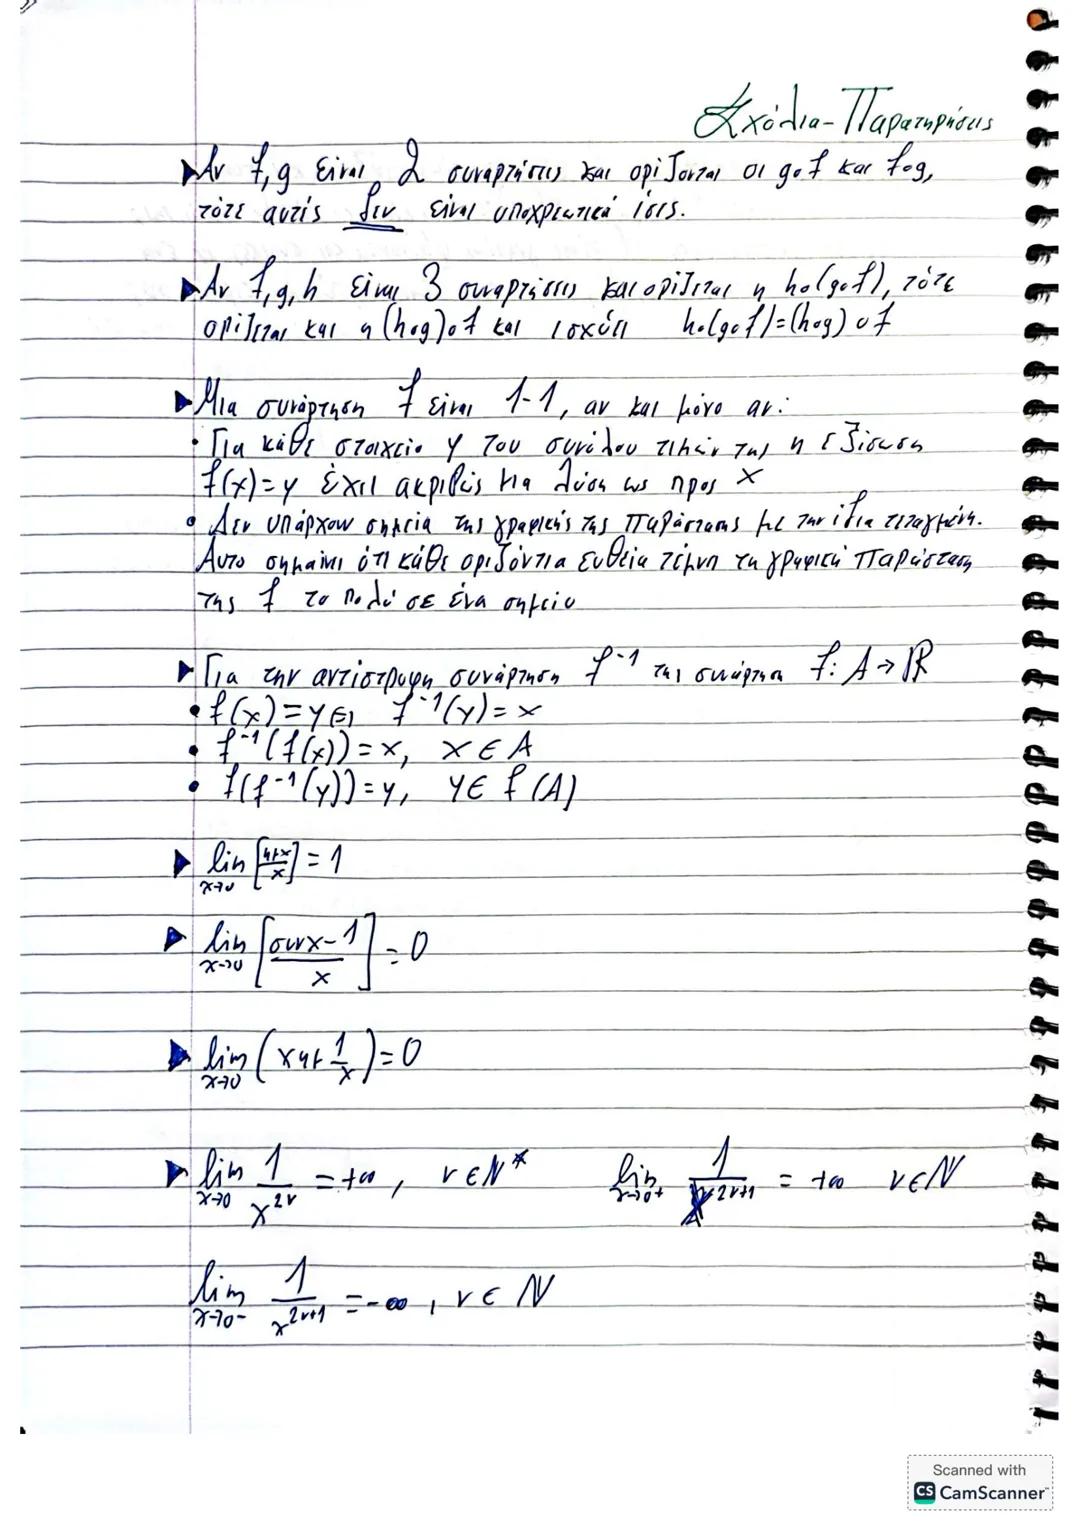 Σχόλια-Παρατηρήσεις
Αν f, g είναι 2 συναρτήσεις και ορίζονται οι gof και fog,
τότε αυτές δεν είναι υποχρεωτικά ίσες.
Αν f, g, h είναι 3 συναρτήσεις και ορίζεται η ho(gof), τότε
ορίζεται και η (hog)of και ισχύει ho(gof)=(hog)of
Μια συνάρτηση f είναι 1-1, αν και μόνο αν:
• Για κάθε στοιχείο y του συνόλου τιμών της η εξίσωση
f(x)=y έχει ακριβώς μια λύση ως προς x
• Δεν υπάρχουν σημεία της γραφικής της παράστασης με την ίδια τεταγμένη.
Αυτο σημαίνει ότι κάθε οριζόντια ευθεία τέμνει τη γραφική παράσταση
της f το πολύ σε ένα σημείο
Για την αντίστροφη συνάρτηση f⁻¹ της συνάρτηση f: A→ℝ
• f(x)=y⇔ f⁻¹(y)=x
• f⁻¹(f(x))=x, x∈A
• f(f⁻¹(y))=y, y∈f(A)
lim x→0 [ημx/x] = 1
lim x→0 [συνx-1/x] = 0
lim x→0 (xημ 1/x)=0
lim x→0 1/x^2ν = +∞, ν∈N* lim x→0+ 1/x^2ν+1 = +∞ ν∈N
lim x→0- 1/x^2ν+1 = -∞, ν∈N
Scanned with
CS CamScanner